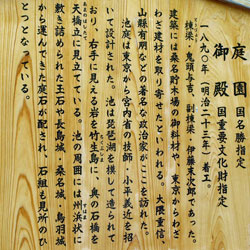 庭園 国名勝指定
御殿 国重要文化財指定
一八九〇年(明治二十三年)着工。
棟梁・鬼頭与吉、副棟梁・伊藤末次郎であった。
建築には桑名貯木場の御料材や、東京からわざ
わざ建材を取り寄せたといわれる。大隈重信、
山縣有朋などの著名な政治家がここを訪れた。
池庭は東京から宮内省の技師・小平義近を招
いて設計された。池は琵琶湖を模して造られて
おり、右手に見える岩を竹生島に、奥の石橋を
天橋立に見立てている。池の周囲には州浜状に
敷き詰められた玉石や長島城・桑名城、鳥羽城
から運んできた庭石が配され、石組も見所のひ
とつとなっている。